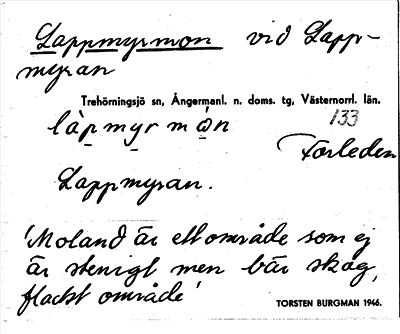 Lappmyrmon vid Lapp-
myran
Trehörningsjö sn, Ångermanl. n. doms. tg, Västernorrl. län.
làpmyrmọ̀n 133
Förleden
Lappmyran.
'Moland är ett område som ej
är stenigt men bär skog,
flackt område'
TORSTEN BURGMAN 1946.